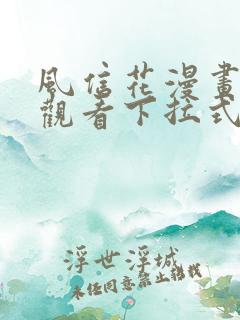 風信花漫畫
觀看下拉式
浮世浮城
未經同意禁止轉載